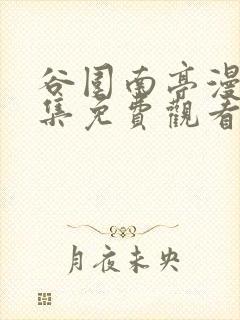 谷围南亭漫
集免費觀看
月夜未央